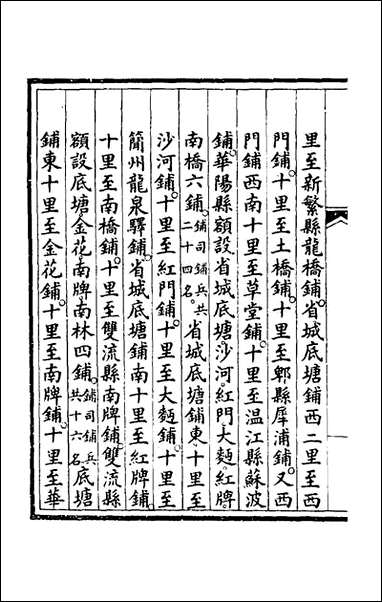 里至新繁縣龍橋鋪省城底塘鋪西二里至西
門鋪十里至土橋鋪十里至郫縣犀浦鋪又西
門鋪西南十里至草堂鋪十里至温江縣蘇波
鋪華陽縣額設省城底塘沙河紅門大麵紅牌
南橋六鋪鋪司鋪兵共二十四名省城底塘鋪東十里至
沙河鋪十里至紅門鋪十里至大麵鋪十里至
簡州龍泉驛鋪省城底塘鋪南十里至紅牌鋪
十里至南橋鋪十里至雙流縣南牌鋪雙流縣
額設底塘金花南牌南林四鋪鋪司鋪兵共十六名底塘
鋪東十里至金花鋪十里至南牌鋪十里至華